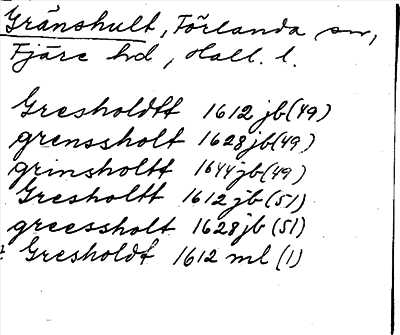 Gränshult, Förlanda sn,
Fjäre hd, Hall. l.
Gresholdtt 1612 jb (49)
grenssholt 1628 jb (49)
grinsholtt 1644 jb (49)
Gresholtt 1612 jb (51)
greessholt 1628 jb (51)
Gresholdt 1612 ml (1)